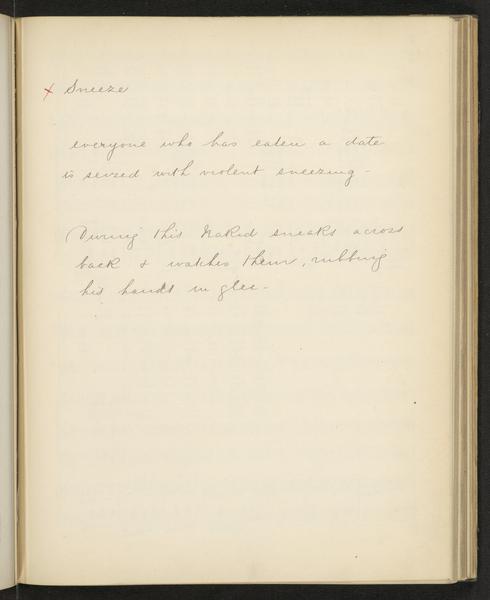 x Sneeze
everyone who has eaten a date
is seized with violent sneezing -
During this Rakid sneaks across
back & watches them, rubbing
his hands in glee -